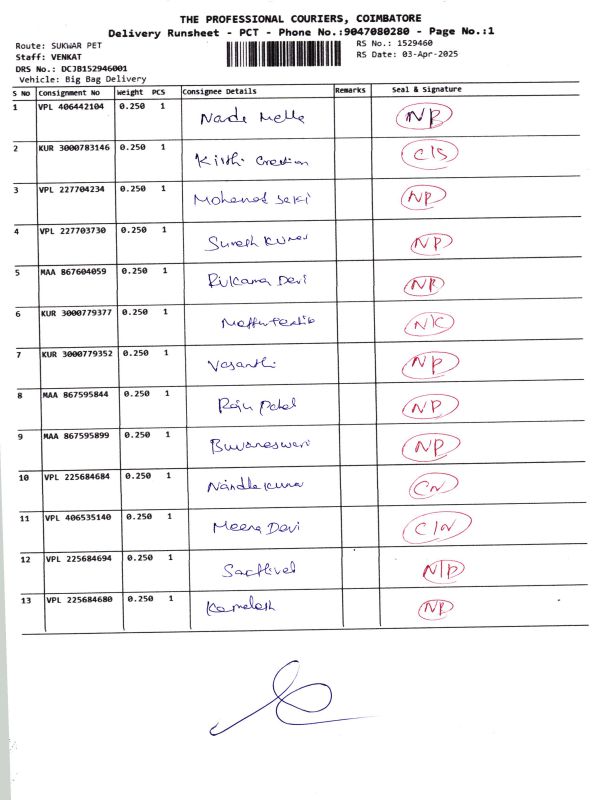 THE PROFESSIONAL COURIERS, COIMBATORE
Delivery Runsheet - PCT - Phone No.:9047080280 - Page No.:1
Route: SUKWAR PET
RS No.: 1529460
Staff: VENKAT
RS Date: 03-Apr-2025
DRS No.: DCJB152946001
Vehicle: Big Bag Delivery
S No Consignment No Weight PCS Consignee Details Remarks Seal & Signature
1 VPL 406442104 0.250 1 NP
2 KUR 3000783146 0.250 1 Kirthi Creation C/S
3 VPL 227704234 0.250 1 Mohamed Seki NP
4 VPL 227703730 0.250 1 Suresh Kumar NP
5 MAA 867604059 0.250 1 Devi NP
6 KUR 3000779377 0.250 1 N/C
7 KUR 3000779352 0.250 1 Vasanthi NP
8 MAA 867595844 0.250 1 Raju Patel NP
9 MAA 867595899 0.250 1 Buvaneswari NP
10 VPL 225684684 0.250 1 CN
11 VPL 406535140 0.250 1 Meena Devi C/N
12 VPL 225684694 0.250 1 Sacthivel N/P
13 VPL 225684680 0.250 1 Kamalesh NP